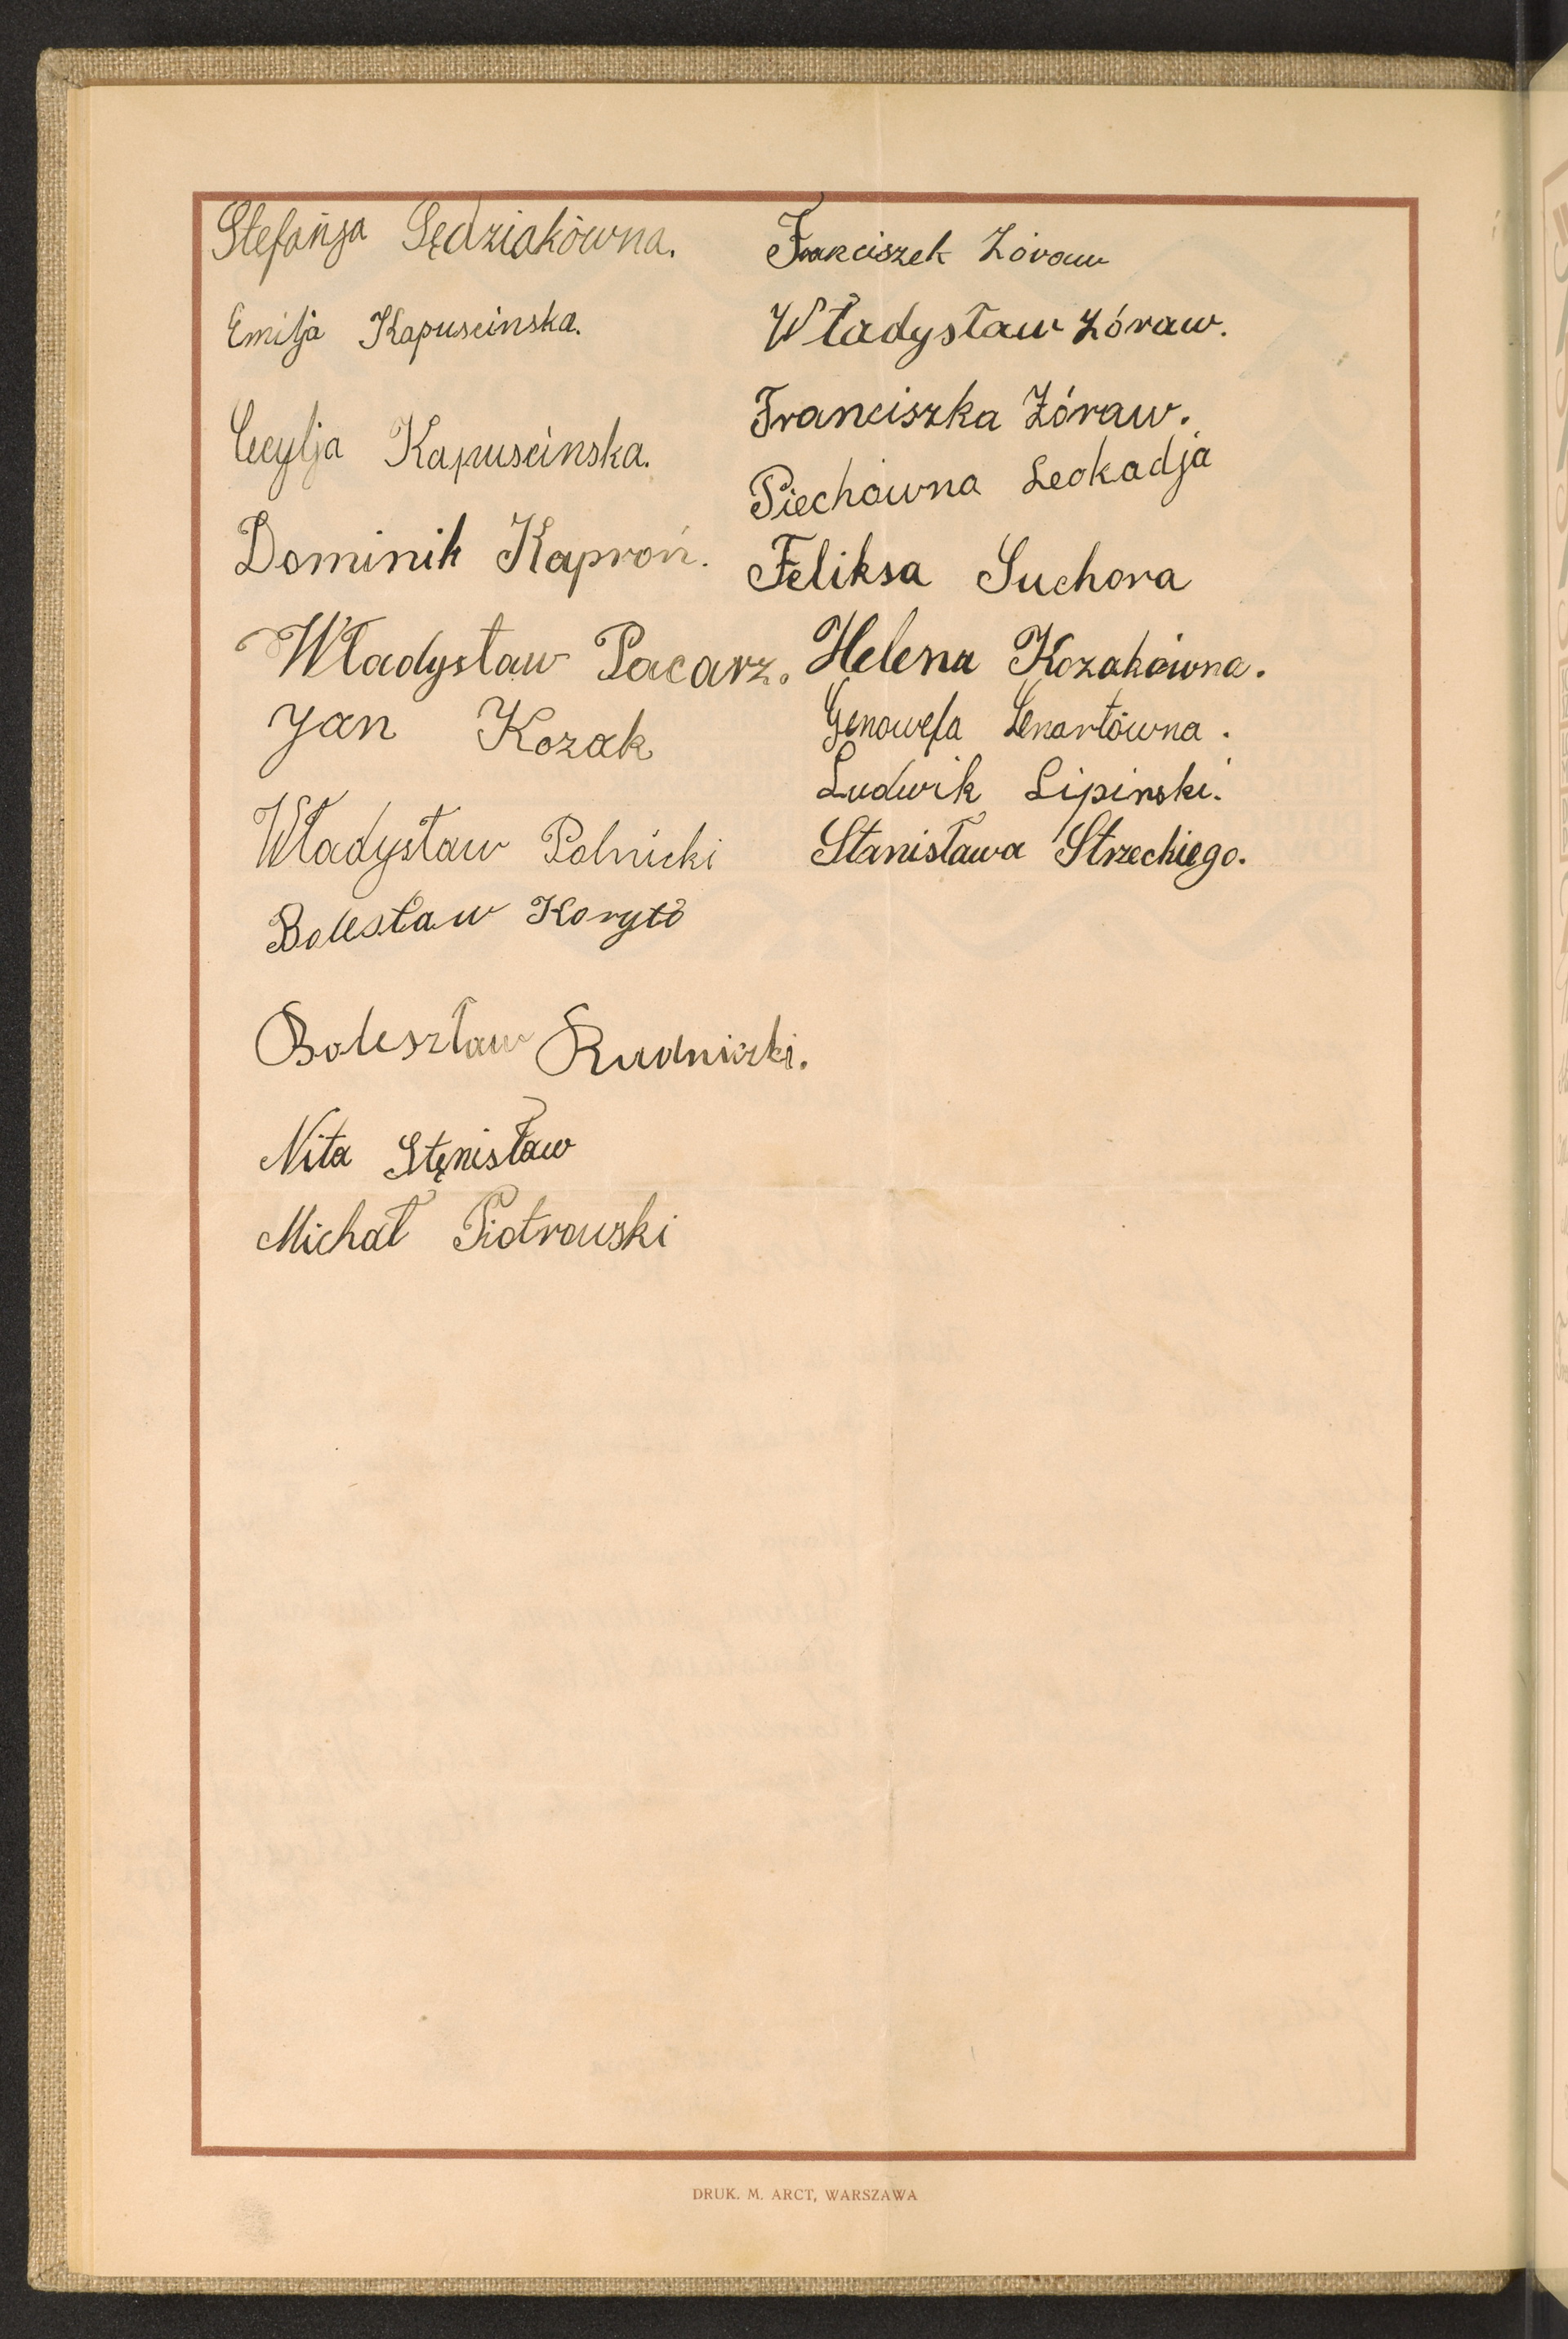 Stefanja Sędziakówna.
Emilja Kapuscinska.
Cecylja Kapuscinska.
Dominik Kaproń.
Władysław Pacarz.
Jan Kozak
Władysław Polnicki
Bolesław Koryto
Boleszław Rudniczki.
Nita Stęnisław
Michał Piotrowski
Franciszek Żóraw
Władysław Żóraw.
Franciszka Żóraw.
Piechówna Leokadja
Feliksa Suchora
Helena Kozakówna.
Genowefa Lenartówna.
Ludwik Lipinski.
Stanisława Strzeckiego.
DRUK. M. ARCT, WARSZAWA